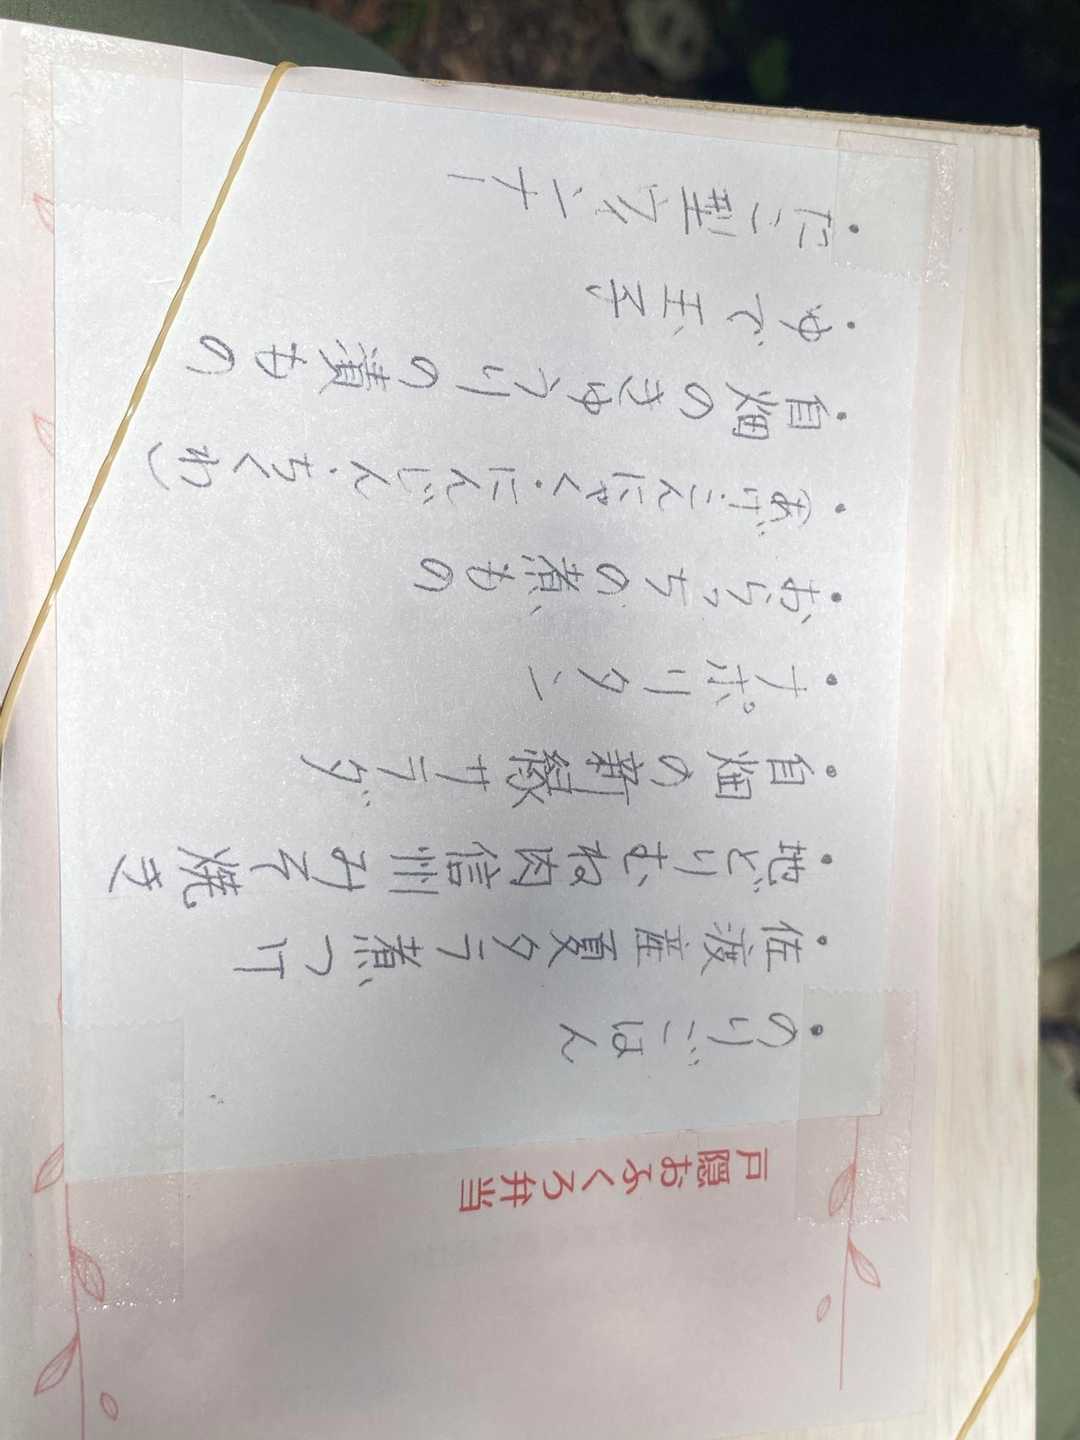 戸隠おふくろ弁当
・のりごはん
・佐渡産夏タラ煮つけ
・地どりむね肉信州みそ焼き
・自畑の新緑サラダ
・ナポリタン
・おらっちの煮もの
・(あげ・こんにゃく・にんじん・ちくわ)
・自畑のきゅうりの漬もの
・ゆで玉子
・たこ型ウィンナー